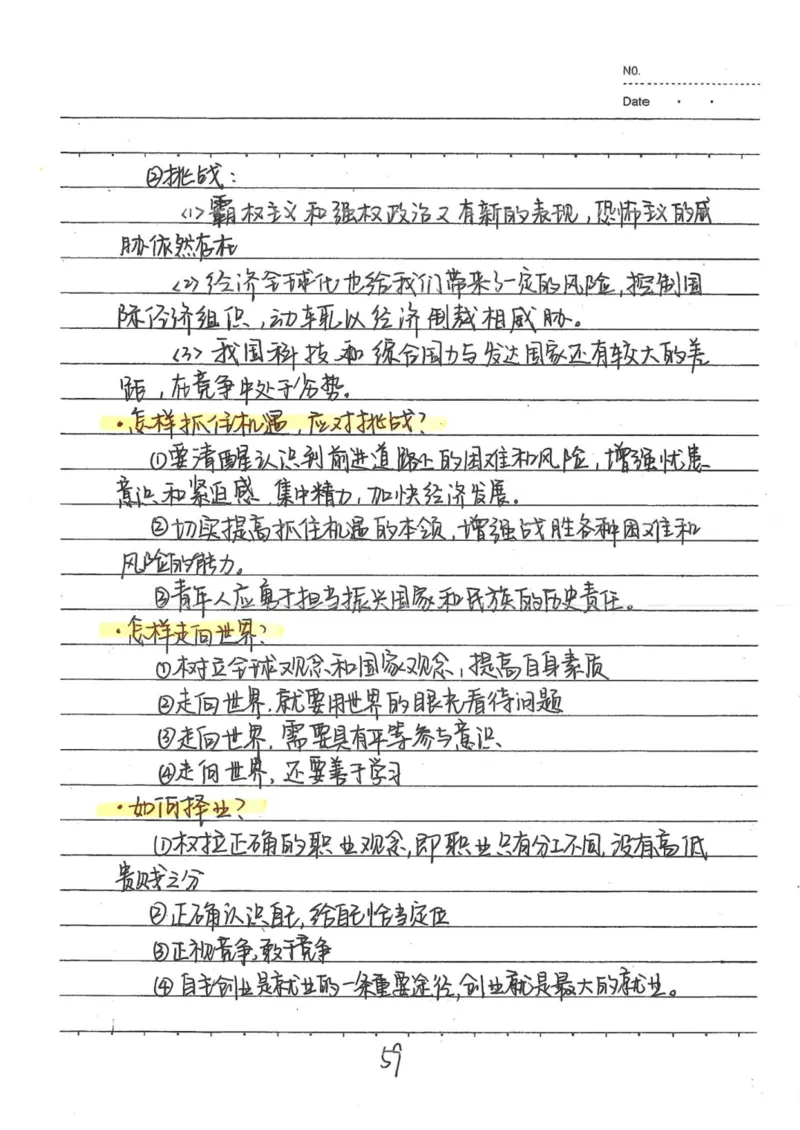 NO.
Date
②挑战：
<1>霸权主义和强权政治又有新的表现，恐怖主义的威
胁依然存在
<2>经济全球化也给我们带来了一定的风险，控制国
际经济组织，动辄以经济制裁相威胁。
<3>我国科技和综合国力与发达国家还有较大的差
距，在竞争中处于劣势。
·怎样抓住机遇，应对挑战？
①要清醒认识到前进道路上的困难和风险，增强忧患
意识和紧迫感，集中精力，加快经济发展。
②切实提高抓住机遇的本领，增强战胜各种困难和
风险的能力。
③青年人应勇于担当振兴国家和民族的历史责任。
·怎样走向世界？
①树立全球观念和国家观念，提高自身素质
②走向世界，就要用世界的眼光看待问题
③走向世界，需要具有平等参与意识
④走向世界，还要善于学习
·如何择业？
①树立正确的职业观念，即职业只有分工不同，没有高低
贵贱之分
②正确认识自己，给自己恰当定位
③正视竞争，敢于竞争
④自主创业是就业的一条重要途径，创业就是最大的就业。
59